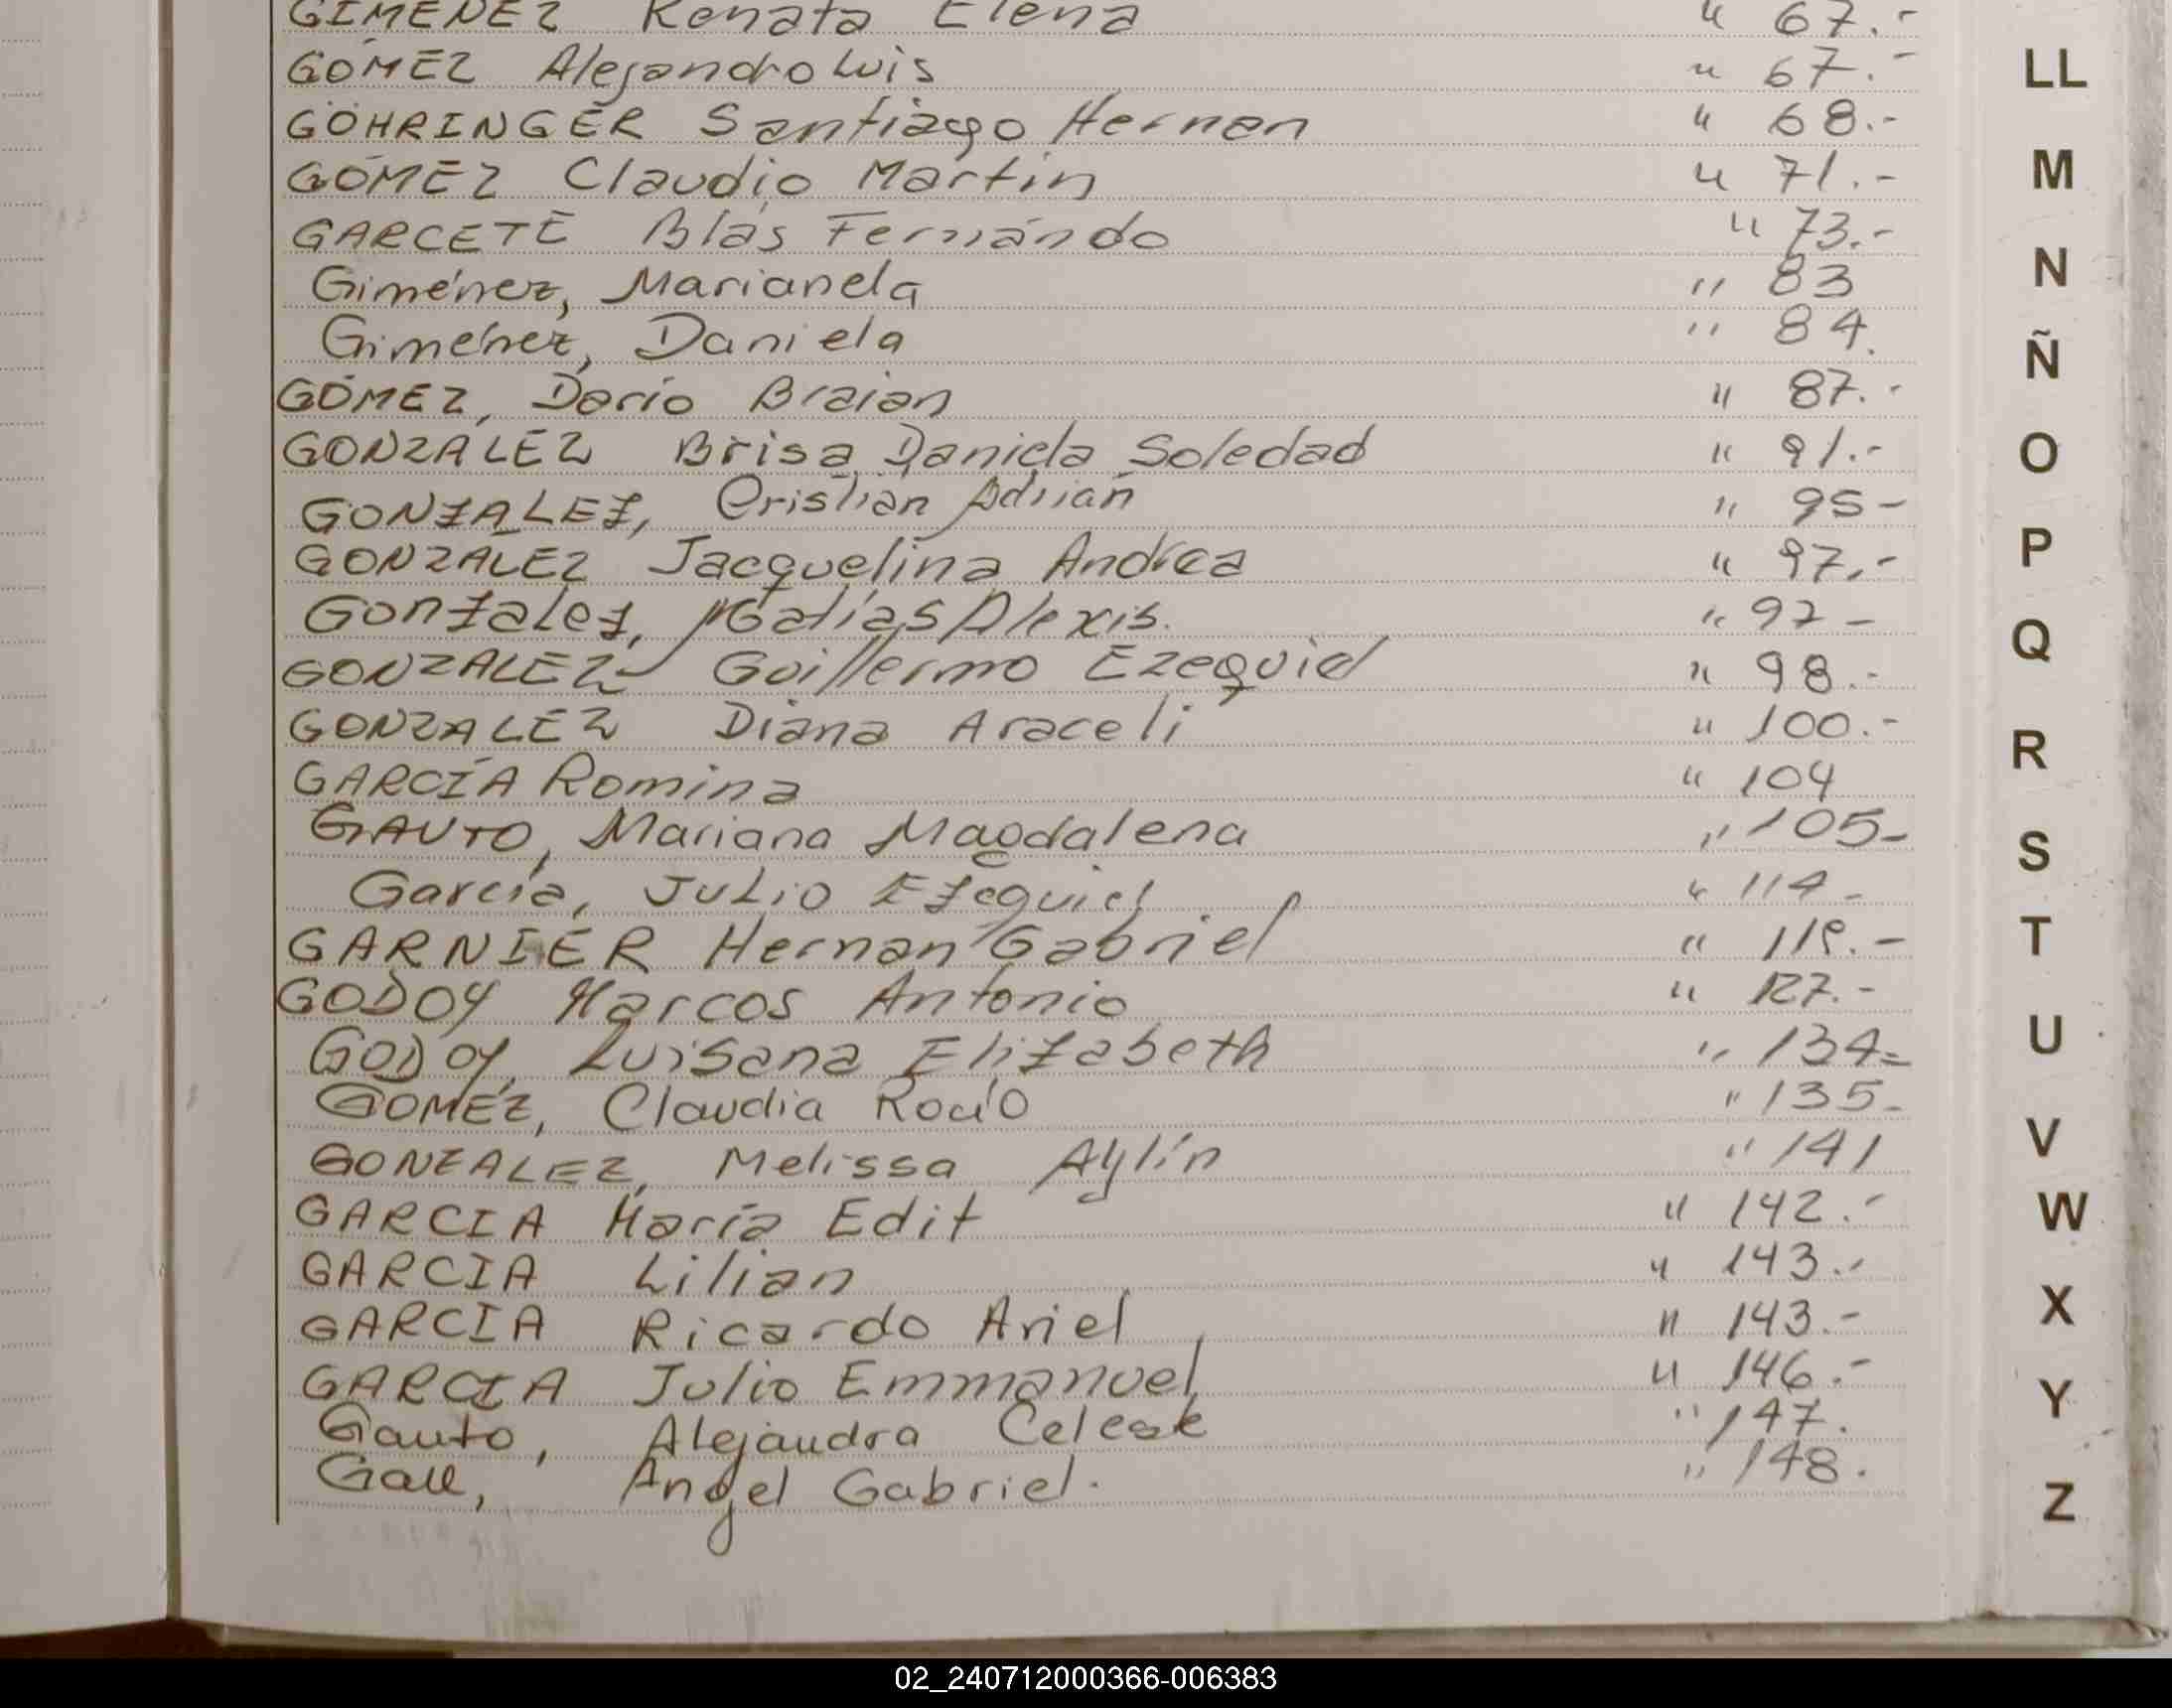 GIMENEZ Renata Elena " 67.-
GOMEZ Alejandro Luis " 67.-
GÖHRINGER Santiago Hernan " 68.-
GOMEZ Claudio Martin " 71.-
GARCETE Blás Fernándo " 73.-
Giménez, Marianela " 83
Giménez, Daniela " 84.
GOMEZ, Darío Braian " 87.-
GONZALEZ Brisa Daniela Soledad " 91.-
GONZALEZ, Cristian Adrian " 95-
GONZALEZ Jacquelina Andrea " 97.-
Gonzalez, Matías Alexis. " 97-
GONZALEZ Guillermo Ezequiel " 98.-
GONZALEZ Diana Araceli " 100.-
GARCÍA Romina " 104
GAUTO, Mariana Magdalena " 105-
García, Julio Ezequiel " 114-
GARNIER Hernan Gabriel " .-
GODOY Marcos Antonio " 127.-
GODOY, Luisana Elizabeth " 134=
GOMEZ, Claudia Rocío " 135-
GONZALEZ, Melissa Aylín " 141
GARCIA María Edit " 142.-
GARCIA Lilian " 143.-
GARCIA Ricardo Ariel " 143.-
GARCIA Julio Emmanuel " 146.-
Gauto, Alejandra Celeste " 147.
Gall, Angel Gabriel. " 148.
LL
M
N
Ñ
O
P
Q
R
S
T
U
V
W
X
Y
Z
02_240712000366-006383